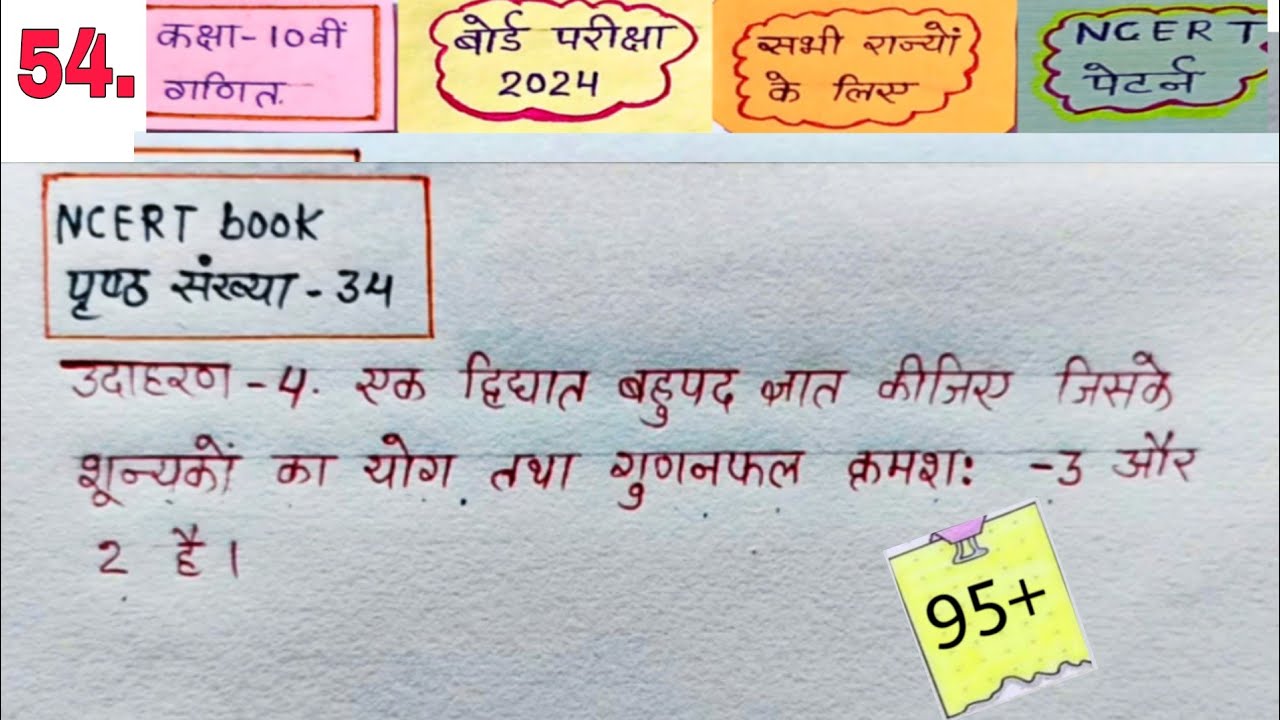 54.
कक्षा-10वीं
गणित.
बोर्ड परीक्षा
2024
सभी राज्यों
के लिए
NCERT
पेटर्न
NCERT book
पृष्ठ संख्या - 34
उदाहरण-4. एक द्विघात बहुपद ज्ञात कीजिए जिसके
शून्यकों का योग तथा गुणनफल क्रमशः -3 और
2 है।
95+